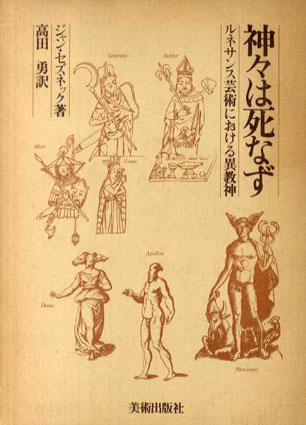 神々は死なず
ルネサンス芸術における異教神
ジャン・セズネック著
高田 勇訳
Saturnus
Jupiter
Mars
Venus
Diana
Apollon
Mercurius
美術出版社